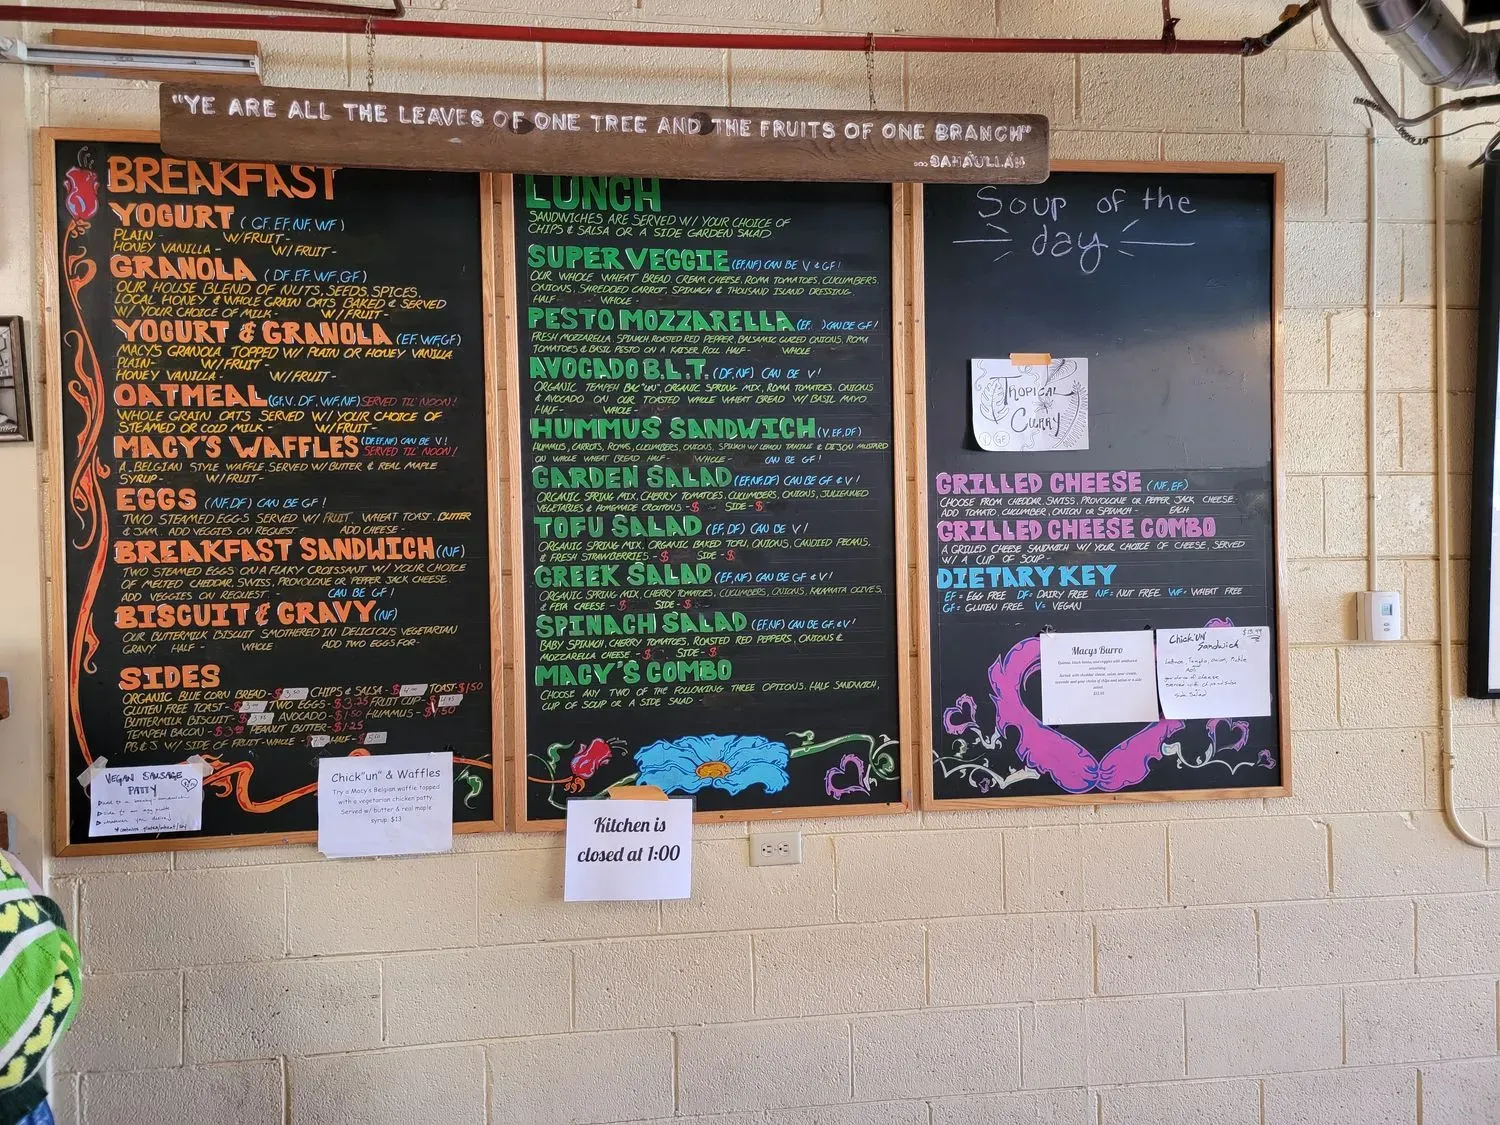 "YE ARE ALL THE LEAVES OF ONE TREE AND THE FRUITS OF ONE BRANCH"
...BAHA'ULLAH
BREAKFAST
YOGURT (GF, EF, NF, WF)
PLAIN - W/FRUIT -
HONEY VANILLA - W/FRUIT -
GRANOLA (DF, EF, WF, GF)
OUR HOUSE BLEND OF NUTS, SEEDS, SPICES,
LOCAL HONEY & WHOLE GRAIN OATS BAKED & SERVED
W/ YOUR CHOICE OF MILK - W/FRUIT -
YOGURT & GRANOLA (EF, WF, GF)
MACY'S GRANOLA TOPPED W/ PLAIN OR HONEY VANILLA
PLAIN - W/FRUIT -
HONEY VANILLA - W/FRUIT -
OATMEAL (GF, V, DF, WF, NF) SERVED TIL' NOON!
WHOLE GRAIN OATS SERVED W/ YOUR CHOICE OF
STEAMED OR COLD MILK - W/FRUIT -
MACY'S WAFFLES (DF, EF, NF) CAN BE V! SERVED TIL' NOON!
A BELGIAN STYLE WAFFLE SERVED W/ BUTTER & REAL MAPLE
SYRUP - W/FRUIT -
EGGS (NF, DF) CAN BE GF!
TWO STEAMED EGGS SERVED W/ FRUIT, WHEAT TOAST, BUTTER
& JAM. ADD VEGGIES ON REQUEST ADD CHEESE -
BREAKFAST SANDWICH (NF)
TWO STEAMED EGGS ON A FLAKY CROISSANT W/ YOUR CHOICE
OF MELTED CHEDDAR, SWISS, PROVOLONE OR PEPPER JACK CHEESE.
ADD VEGGIES ON REQUEST - CAN BE GF!
BISCUIT & GRAVY (NF)
OUR BUTTERMILK BISCUIT SMOTHERED IN DELICIOUS VEGETARIAN
GRAVY. HALF - WHOLE ADD TWO EGGS FOR -
SIDES
ORGANIC BLUE CORN BREAD - $3.50 CHIPS & SALSA - $ TOAST - $1.50
GLUTEN FREE TOAST - $ TWO EGGS - $3.25 FRUIT CUP - $
BUTTERMILK BISCUIT - $ AVOCADO - $1.50 HUMMUS - $1.50
TEMPEH BACON - $ PEANUT BUTTER - $1.25
PB & J W/ SIDE OF FRUIT - WHOLE - HALF -
VEGAN SAUSAGE
PATTY
Chick"un" & Waffles
Try a Macy's Belgian waffle topped
with a vegetarian chicken patty.
Served w/ butter & real maple
syrup. $13
LUNCH
SANDWICHES ARE SERVED W/ YOUR CHOICE OF
CHIPS & SALSA OR A SIDE GARDEN SALAD
SUPER VEGGIE (EF, NF) CAN BE V & GF!
OUR WHOLE WHEAT BREAD, CREAM CHEESE, ROMA TOMATOES, CUCUMBERS,
ONIONS, SHREDDED CARROT, SPINACH & THOUSAND ISLAND DRESSING.
HALF - WHOLE -
PESTO MOZZARELLA (EF, ) CAN BE GF!
FRESH MOZZARELLA, SPINACH, ROASTED RED PEPPER, BALSAMIC GLAZED ONIONS, ROMA
TOMATOES & BASIL PESTO ON A KAISER ROLL HALF - WHOLE
AVOCADO B.L.T. (DF, NF) CAN BE V!
ORGANIC TEMPEH BAC"UN", ORGANIC SPRING MIX, ROMA TOMATOES, ONIONS
& AVOCADO ON OUR TOASTED WHOLE WHEAT BREAD W/ BASIL MAYO.
HALF - WHOLE -
HUMMUS SANDWICH (V, EF, DF)
HUMMUS, CARROTS, ROMAS, CUCUMBERS, ONIONS, SPINACH W/ LEMON TAHINI & DIJON MUSTARD
ON WHOLE WHEAT BREAD. HALF - WHOLE - CAN BE GF!
GARDEN SALAD (EF, NF, DF) CAN BE GF & V!
ORGANIC SPRING MIX, CHERRY TOMATOES, CUCUMBERS, ONIONS, JULIENNED
VEGETABLES & HOMEMADE CROUTONS - $ SIDE - $
TOFU SALAD (EF, DF) CAN BE V!
ORGANIC SPRING MIX, ORGANIC BAKED TOFU, ONIONS, CANDIED PECANS,
& FRESH STRAWBERRIES - $ SIDE - $
GREEK SALAD (EF, NF) CAN BE GF & V!
ORGANIC SPRING MIX, CHERRY TOMATOES, CUCUMBERS, ONIONS, KALAMATA OLIVES,
& FETA CHEESE - $ SIDE - $
SPINACH SALAD (EF, NF) CAN BE GF & V!
BABY SPINACH, CHERRY TOMATOES, ROASTED RED PEPPERS, ONIONS &
MOZZARELLA CHEESE - $ SIDE - $
MACY'S COMBO
CHOOSE ANY TWO OF THE FOLLOWING THREE OPTIONS. HALF SANDWICH,
CUP OF SOUP OR A SIDE SALAD -
Kitchen is
closed at 1:00
Soup of the
day
Tropical
Curry
GF
GRILLED CHEESE (NF, EF)
CHOOSE FROM CHEDDAR, SWISS, PROVOLONE OR PEPPER JACK CHEESE.
ADD TOMATO, CUCUMBER, ONION OR SPINACH - EACH
GRILLED CHEESE COMBO
A GRILLED CHEESE SANDWICH W/ YOUR CHOICE OF CHEESE, SERVED
W/ A CUP OF SOUP -
DIETARY KEY
EF = EGG FREE DF = DAIRY FREE NF = NUT FREE WF = WHEAT FREE
GF = GLUTEN FREE V = VEGAN
Macys Burro
Chick'UN' $13.99
Sandwich
Lettuce, Tomato, onion, Pickle
your choice of cheese
served with chips and salsa
Side Salad